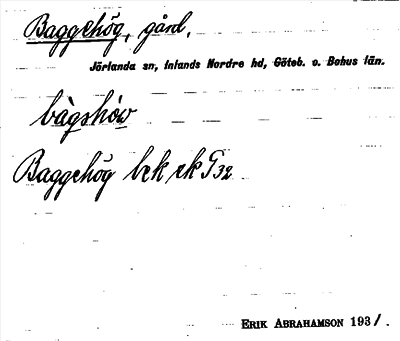 Baggehög, gård,
Jörlanda sn, Inlands Nordre hd, Göteb. o. Bohus län.
bàgshów
Baggehög bek
ERIK ABRAHAMSON 1931.